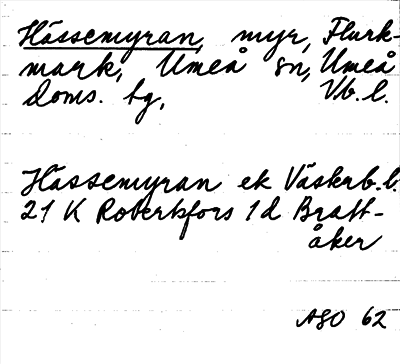 Hässemyran, myr, Flurk-
mark, Umeå sn, Umeå
doms. tg, Vb. l.
Hässemyran ek Västerb. l.
21 K Robertsfors 1 d Bratt-
åker
ASO 62